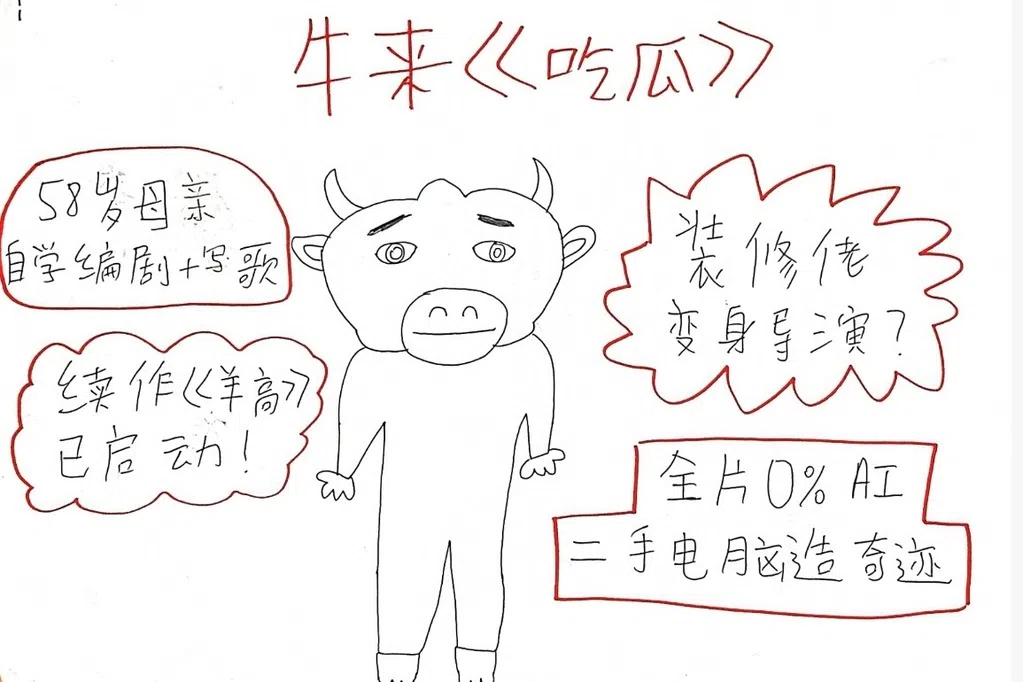 牛来《吃瓜》
58岁母亲
自学编剧+写歌
续作《羊高》
已启动！
装修佬
变身导演？
全片0% AI
二手电脑造奇迹